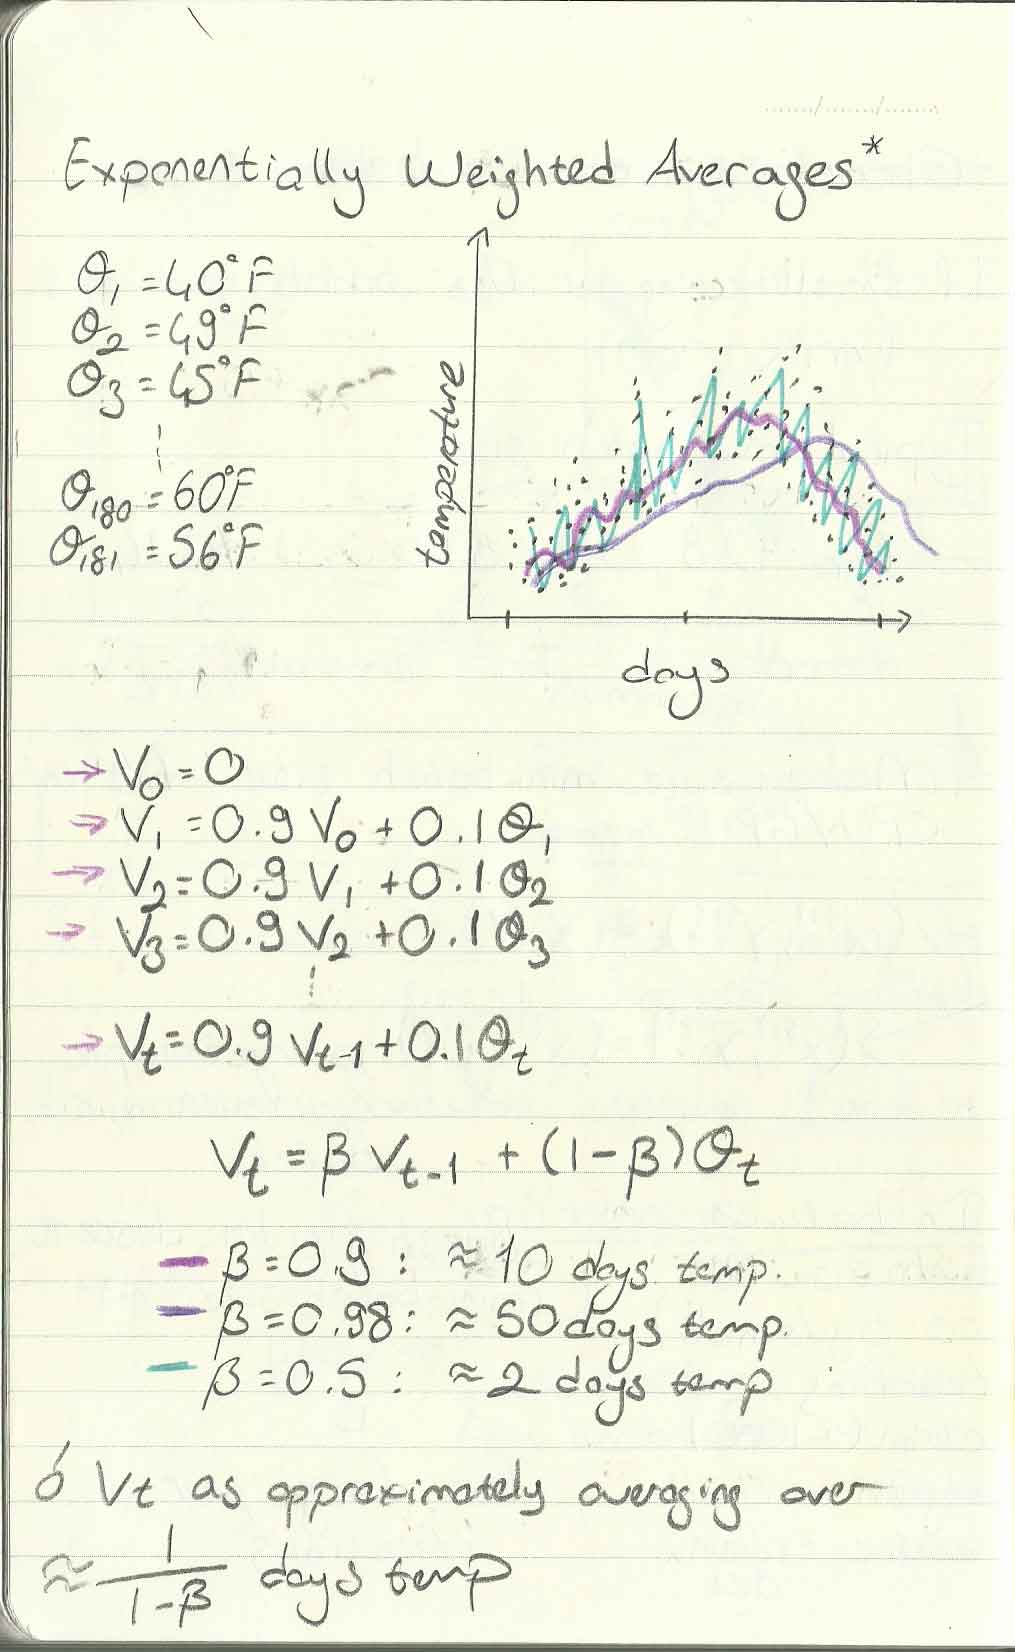 Exponentially Weighted Averages*
θ₁ = 40°F
θ₂ = 49°F
θ₃ = 45°F
θ₁₈₀ = 60°F
θ₁₈₁ = 56°F
temperature
days
→ V₀ = 0
→ V₁ = 0.9 V₀ + 0.1 θ₁
→ V₂ = 0.9 V₁ + 0.1 θ₂
→ V₃ = 0.9 V₂ + 0.1 θ₃
→ Vₜ = 0.9 Vₜ₋₁ + 0.1 θₜ
Vₜ = β Vₜ₋₁ + (1-β) θₜ
β = 0.9 : ≈ 10 days temp.
β = 0.98 : ≈ 50 days temp.
β = 0.5 : ≈ 2 days temp
Vt as approximately averaging over
≈ 1/(1-β) days temp